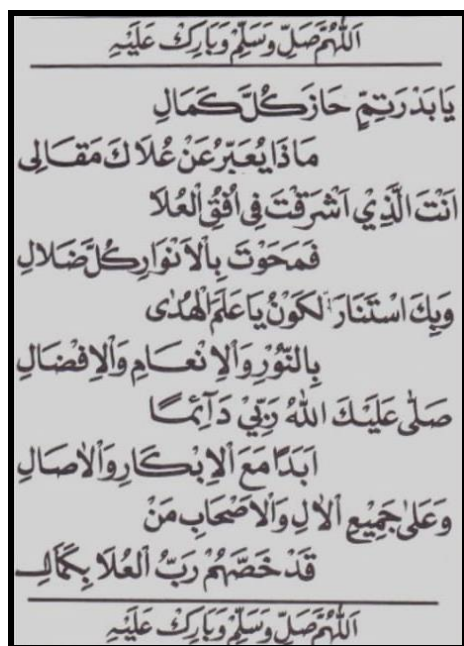 اَللّٰهُمَّ صَلِّ وَسَلِّمْ وَبَارِكْ عَلَيْهِ
يَا بَدْرَتِمٍّ حَازَ كُلَّ كَمَالِ
مَاذَا يُعَبِّرُ عَنْ عُلَاكَ مَقَالِى
اَنْتَ الَّذِيْ اَشْرَقْتَ فِى اُفُقِ الْعُلَا
فَمَحَوْتَ بِالْاَنْوَارِ كُلَّ ضَلَالِ
وَبِكَ اسْتَنَارَ الْكَوْنُ يَا عَلَمَ الْهُدٰى
بِالنُّوْرِ وَالْاِنْعَامِ وَالْاِفْضَالِ
صَلّٰى عَلَيْكَ اللّٰهُ رَبِّيْ دَآئِمًا
اَبَدًا مَعَ الْاِبْكَارِ وَالْاٰصَالِ
وَعَلٰى جَمِيْعِ الْاٰلِ وَالْاَصْحَابِ مَنْ
قَدْ خَصَّهُمْ رَبُّ الْعُلَا بِكَمَالِ
اَللّٰهُمَّ صَلِّ وَسَلِّمْ وَبَارِكْ عَلَيْهِ